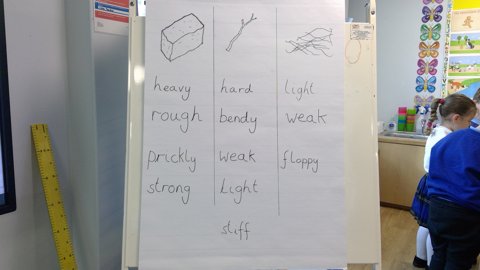 heavy hard light
rough bendy weak
prickly weak floppy
strong Light
stiff